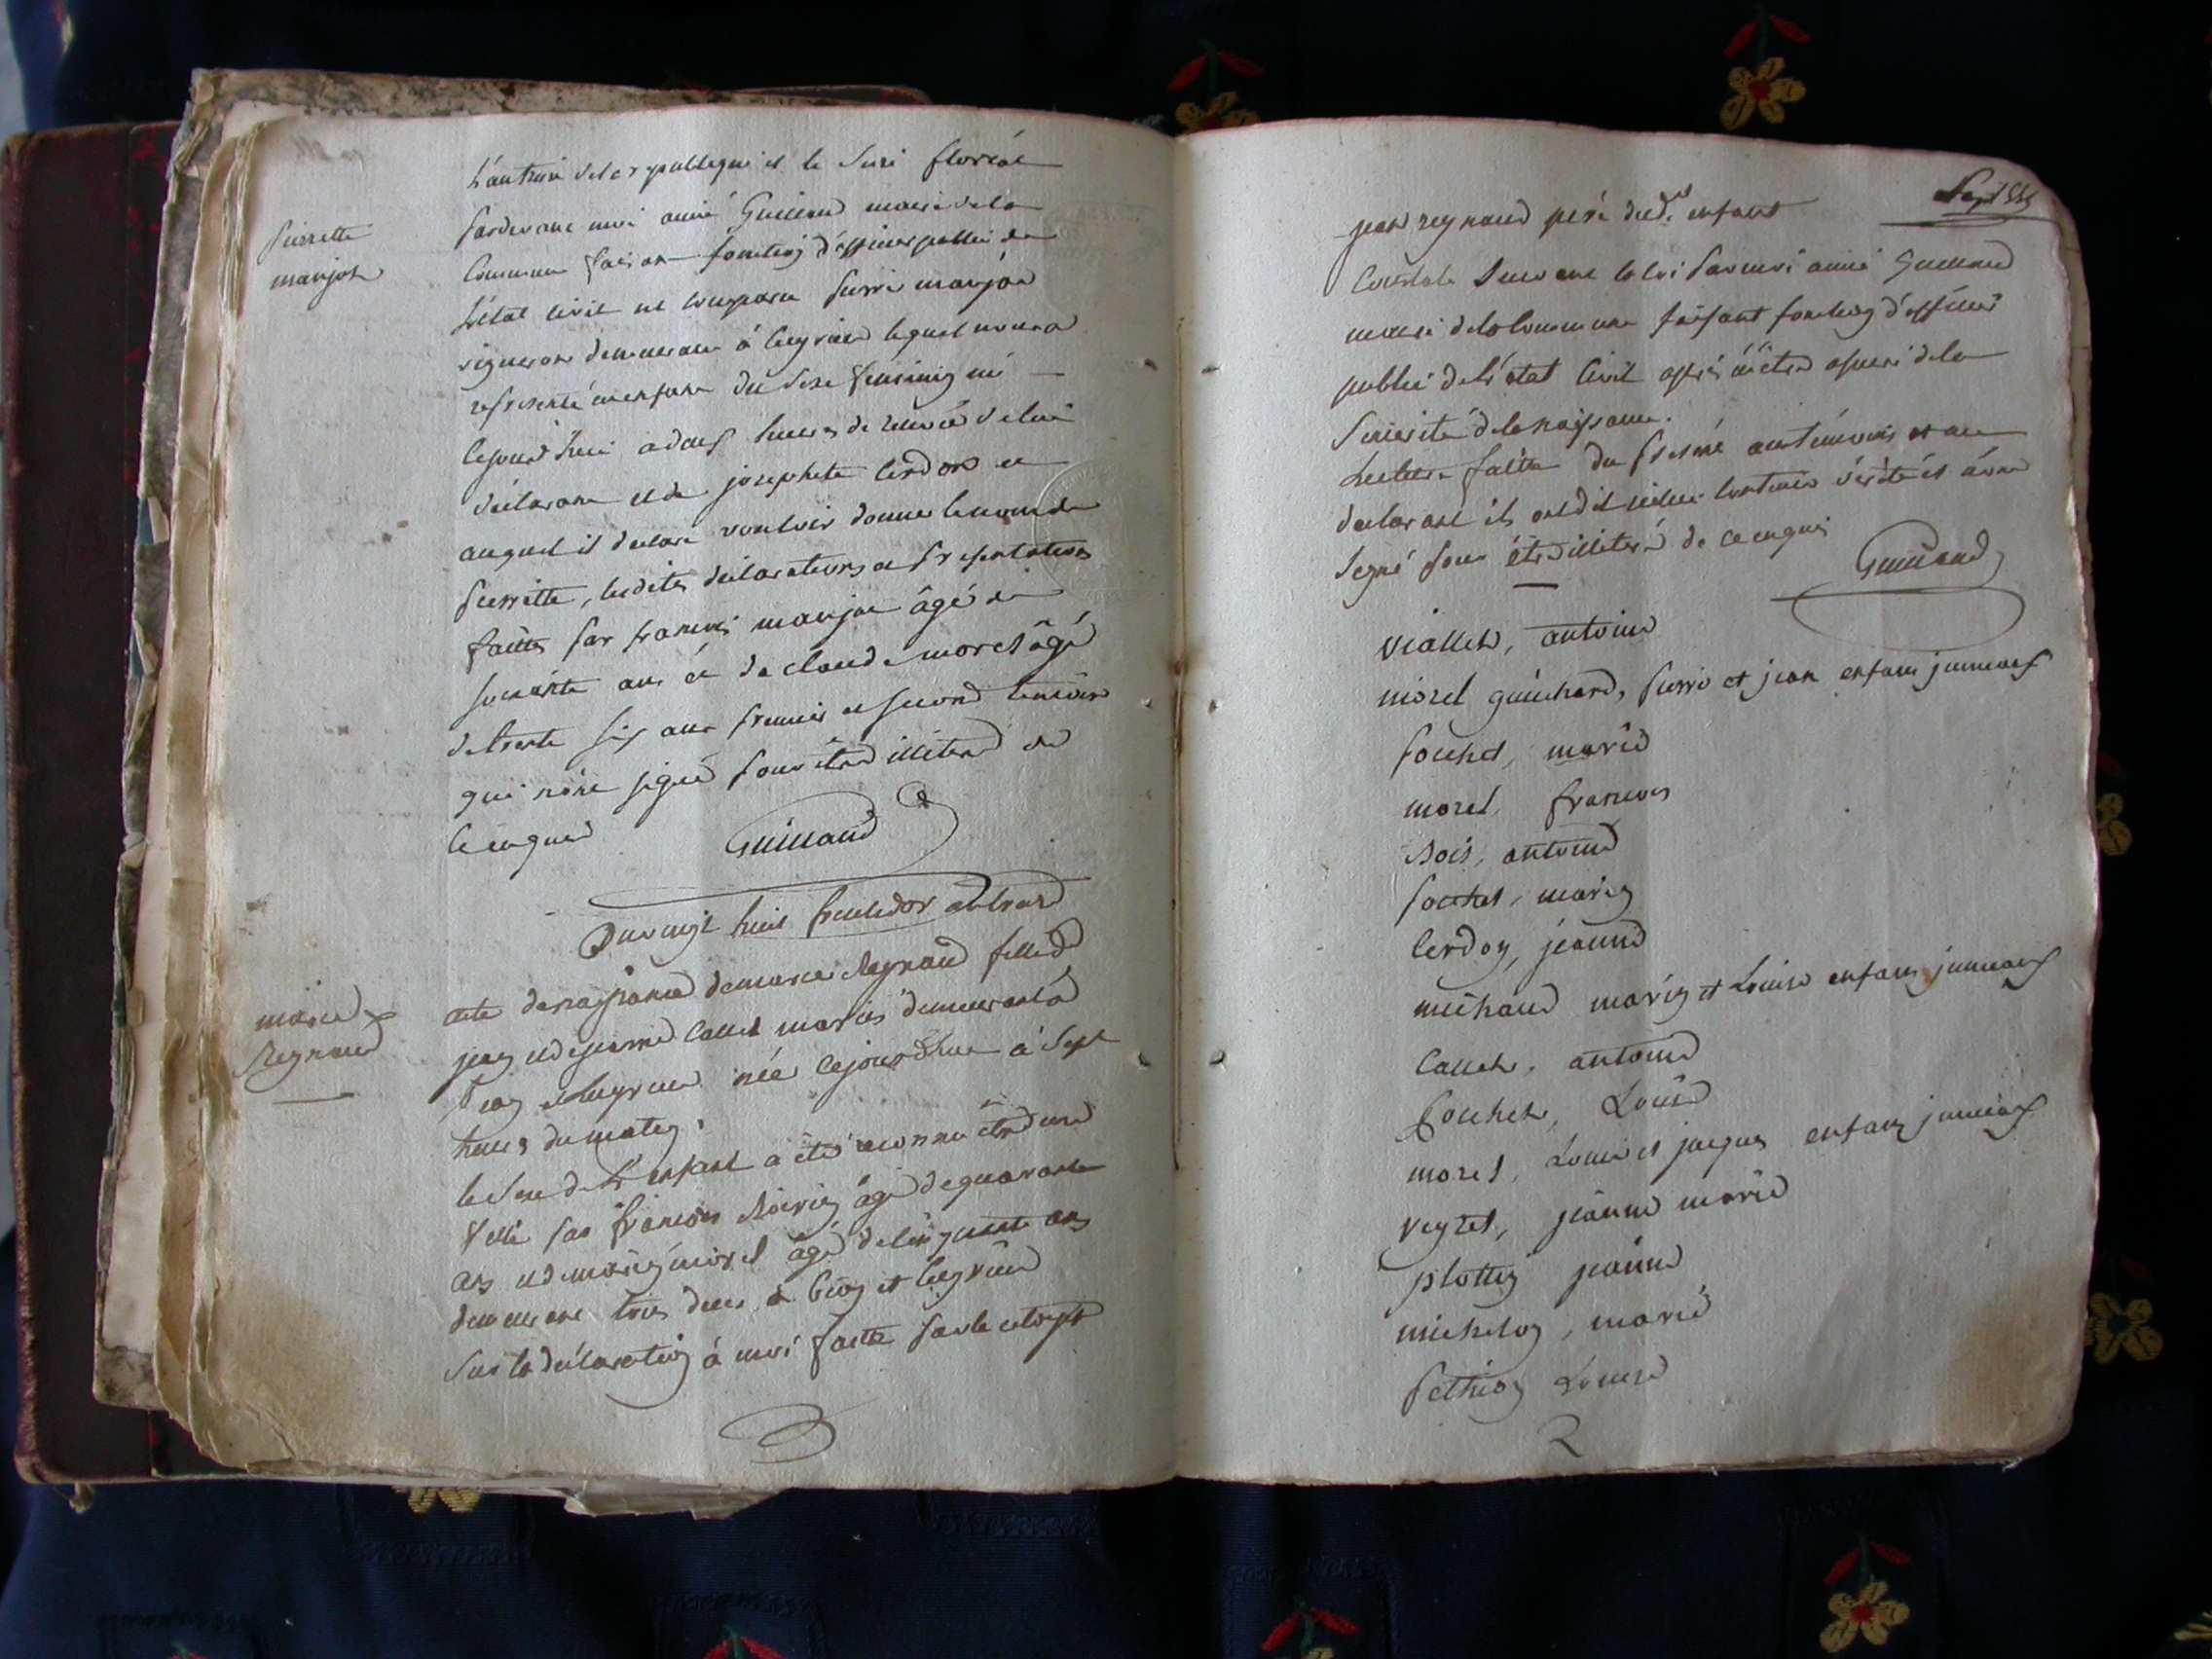 L'an treize de la republique et le six floréal
Pierrette
manjot
pardevant moi aimé Guilland maire de la
commune faisant fonction d'officier public de
l'état civil est comparu pierre manjot
vigneron demeurant à lequel nous a
presenté un enfant du sexe feminin né
cejourd'hui a douf heures de relevée de lui
déclarant et de josephete Cerdon et
auquel il declare vouloir donner le nom de
pierrette, lesdites declarations et presentations
faittes par francois manjot âgé de
soixante ans et de claude morel âgé
de trente six ans premier et second temoins
qui n'ont signé pour être illiteré de
ce enquis
Guilland
Du vingt huit fructidor an treize
marie
Reynaud
acte de naissance de marie Reynaud fille de
jean et de jeanne Callet mariés demeurant à
née cejourd'hui à sept
heures du matin.
le sexe de l'enfant a été reconnu être une
fille par francois âgé de quarante
ans et de marin morel âgé de cinquante ans
demeurant tous deux à et
sur la déclaration à moi faitte par le
jean reynaud pere dud. enfant
Constaté suivant la loi par moi aimé Guilland
maire de la commune faisant fonction d'officier
public de l'état civil après m'être assuré de la
sincerité de la naissance.
Lecture faitte du presné aux temoins et au
declarant ils ont dit icelui contenir vérité et n'ont
signé pour être illiteré de ce enquis
Guilland
viallet, antoine
morel guichard, pierre et jean enfans jumeaux
pochet, marie
morel, francois
Bois, antoine
pochet, marie
Cerdon, jeanne
michaud marin et Louise enfans jumeaux
Callet, antoine
pochet, Louis
morel, Louis et jacques enfans jumeaux
veyret, jeanne marie
plottin jeanne
michelon, marie
pethion Louise